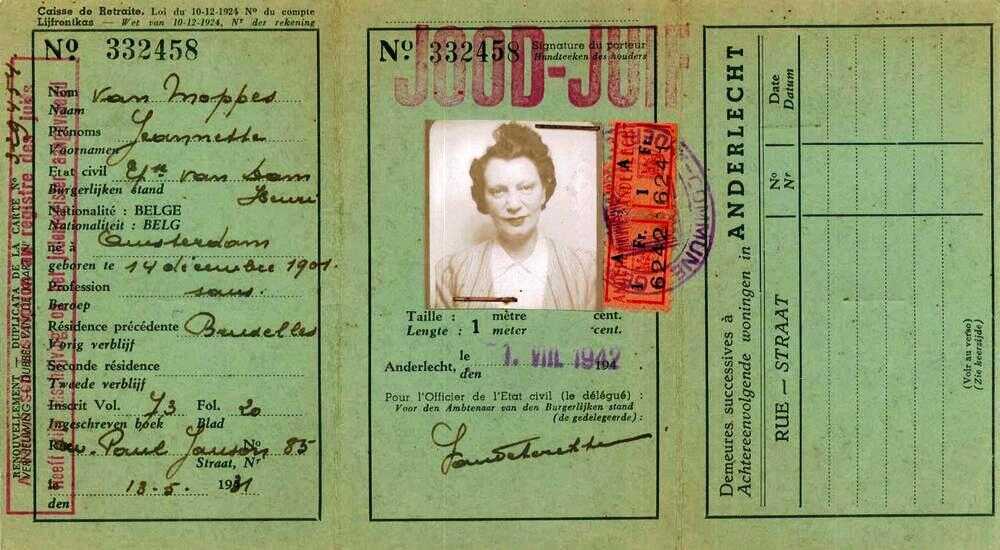 Caisse de Retraite. Loi du 10-12-1924 Nº du compte
Lijfrentkas — Wet van 10-12-1924, Nr der rekening
Nº 332458
Nom van Moppes
Naam
Prénoms Jeannette
Voornamen
Etat civil van Dam
Burgerlijken stand
Nationalité : BELGE
Nationaliteit : BELG
né à Amsterdam
geboren te 14 décembre 1901.
Profession sans.
Beroep
Résidence précédente Bruxelles
Vorig verblijf
Seconde résidence
Tweede verblijf
Inscrit Vol. 73 Fol. 20
Ingeschreven boek Blad
Paul Janson Nº 85
Straat, Nr
le 13-5. 1931
den
RENOUVELLEMENT — DUPLICATA DE LA CARTE Nº
registre des juifs
JOOD-JUIF
Nº 332458
Signature du porteur
Handteeken des houders
ANDERLECHT
1 Fr. A
6241
1 Fr. A
6242
COMMUNE
Taille : mètre cent.
Lengte : 1 meter cent.
Anderlecht, le 1. VIII. 1942 194
den
Pour l'Officier de l'Etat civil (le délégué) :
Voor den Ambtenaar van den Burgerlijken stand
(de gedelegeerde) :
Demeures successives à
Achtereenvolgende woningen in ANDERLECHT
Date
Datum
Nº
Nr
RUE — STRAAT
(Voir au verso)
(Zie keerzijde)